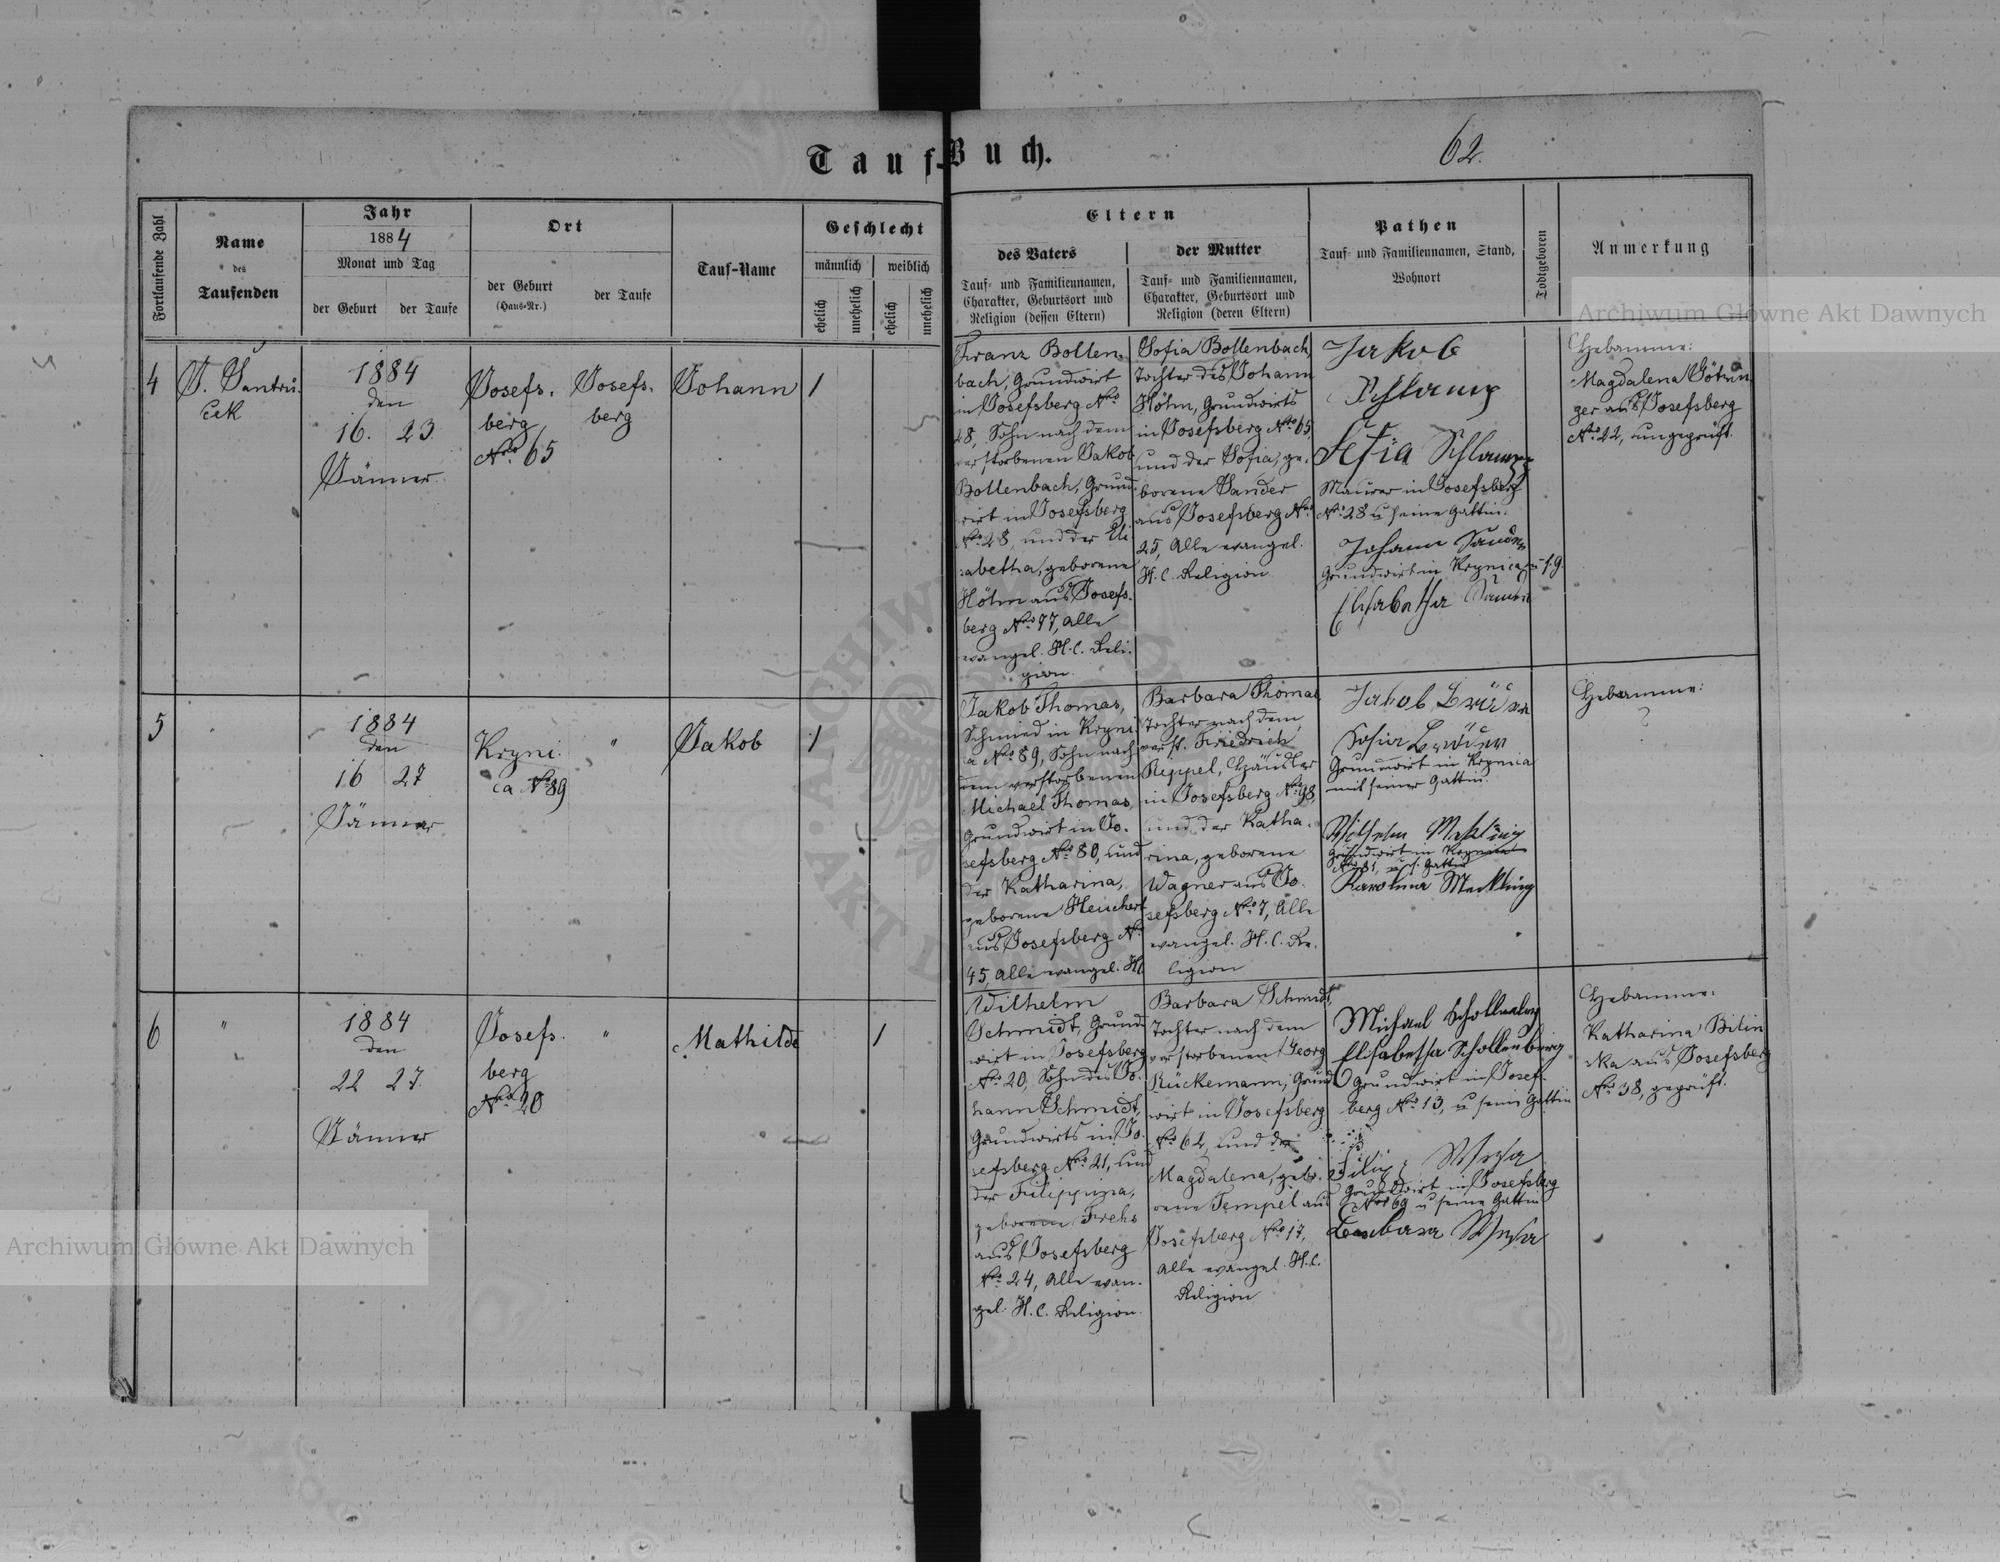 Tauf-Buch.
62.
Fortlaufende Zahl
Name
des
Taufenden
Jahr
1884
Monat und Tag
der Geburt
der Taufe
Ort
der Geburt
(Haus-Nr.)
der Taufe
Tauf-Name
Geschlecht
männlich
weiblich
ehelich
unehelich
ehelich
unehelich
Eltern
des Vaters
Tauf- und Familiennamen,
Charakter, Geburtsort und
Religion (dessen Eltern)
der Mutter
Tauf- und Familiennamen,
Charakter, Geburtsort und
Religion (deren Eltern)
Pathen
Tauf- und Familiennamen, Stand,
Wohnort
Todtgeboren
Anmerkung
Archiwum Główne Akt Dawnych
4
J. Jantrů-
ček
1884
den
16. 23.
Jänner
Josefs-
berg
Nro 65
Josefs-
berg
Johann
1
Franz Bollen-
bach, Grundwirt
in Josefsberg Nro
28, Sohn nach dem
verstorbenen Jakob
Bollenbach, Grund-
wirt in Josefsberg
Nro 28, und der Eli-
sabetha, geborene
Höhn aus Josefs-
berg Nro 77, alle
evangel. H. C. Reli-
gion.
Sofia Bollenbach,
Tochter des Johann
Höhn, Grundwirts
in Josefsberg Nro 65,
und der Sofia, ge-
borene Sander
aus Josefsberg Nro
25, Alle evangel.
H. C. Religion
Jakob
Schlamp
Sofia Schlamp
Maurer in Josefsberg
Nro 28 u seine Gattin.
Johann Sander
Grundwirt in Krynica u. s. g.
Elisabetha Sander
Hebamme:
Magdalena
ger aus Josefsberg
Nro 22, ungeprüft.
5
"
1884
den
16 27
Jänner
Kryni-
ca Nro 89
"
Jakob
1
Jakob Thomas,
Schmied in Kryni-
ca Nro 89, Sohn nach
dem verstorbenen
Michael Thomas,
Grundwirt in Jo-
sefsberg Nro 80, und
der Katharina,
geborene Heuchert
aus Josefsberg Nro
45, Alle evangel. HC
Barbara Thomas
Tochter nach dem
verst. Friedrich
Rippel, Häusler
in Josefsberg Nro 98,
und der Katha-
rina, geborene
Wagner aus Jo-
sefsberg Nro 7, Alle
evangel. H. C. Re-
ligion
Jakob Bröder
Sofia Bröder
Grundwirt in Krynica
mit seiner Gattin.
Wilhelm Mekling
Grundwirt in Krynica
Nro 81, u. s. Gattin
Karolina Meckling
Hebamme:
?
6
"
1884
den
22 27.
Jänner
Josefs-
berg
Nro 20
"
Mathilde
1
Wilhelm
Schmidt, Grund-
wirt in Josefsberg
Nro 20, Sohn des Jo-
hann Schmidt,
Grundwirts in Jo-
sefsberg Nro 21, und
der Filippina,
geborene
aus Josefsberg
Nro 24, Alle evan-
gel. H. C. Religion.
Barbara Schmidt,
Tochter nach dem
verstorbenen Georg
Rückemann, Grund-
wirt in Josefsberg
Nro 62, und der
Magdalena, gebo-
rene Tempel aus
Josefsberg Nro 17,
Alle evangel. H. C.
Religion
Michael Schollenberg
Elisabetha Schollenberg
Grundwirt in Josef-
berg Nro 13, u seine Gattin
Filip
Grundwirt in Josefsberg
Nro 69 u seine Gattin
Barbara
Hebamme:
Katharina Bilin-
ska aus Josefsberg
Nro 38, geprüft.
Archiwum Główne Akt Dawnych